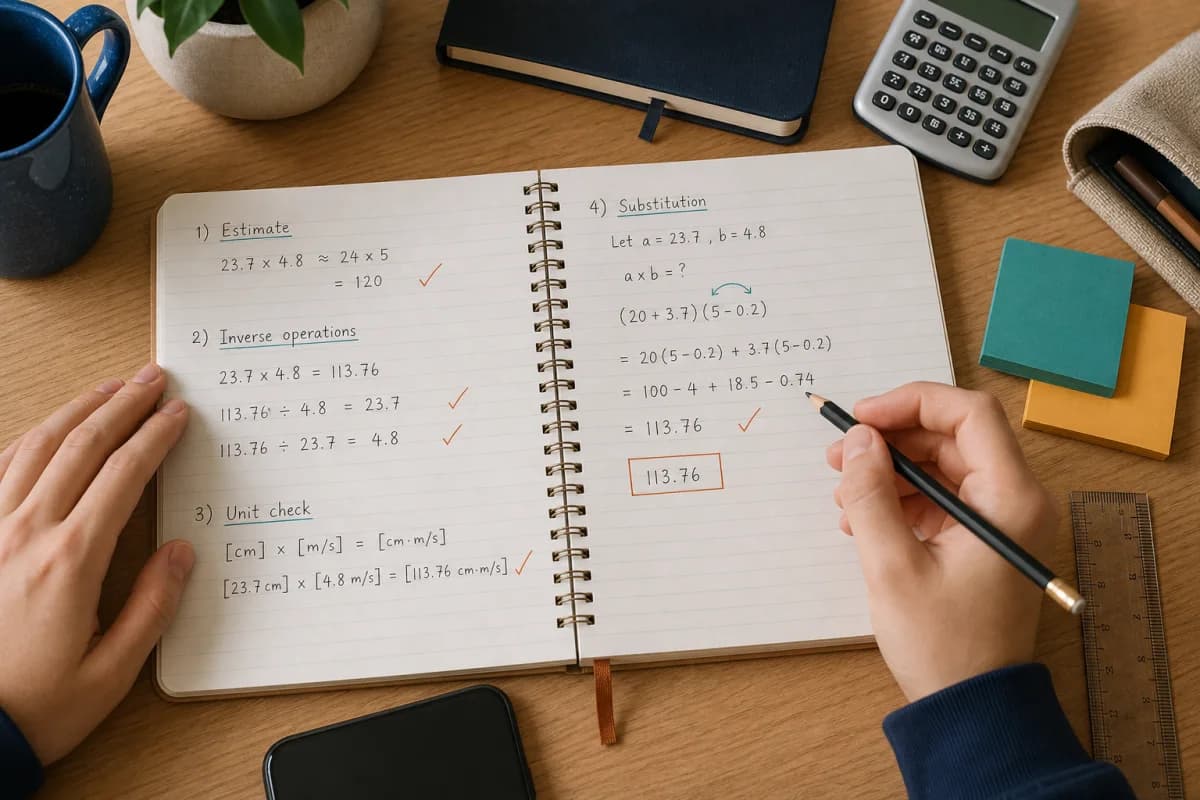 1) Estimate
23.7 × 4.8 ≈ 24 × 5
= 120 ✓
2) Inverse operations
23.7 × 4.8 = 113.76
113.76 ÷ 4.8 = 23.7 ✓
113.76 ÷ 23.7 = 4.8 ✓
3) Unit check
[cm] × [m/s] = [cm·m/s]
[23.7 cm] × [4.8 m/s] = [113.76 cm·m/s] ✓
4) Substitution
Let a = 23.7 , b = 4.8
a × b = ?
(20 + 3.7)(5 − 0.2)
= 20(5 − 0.2) + 3.7(5 − 0.2)
= 100 − 4 + 18.5 − 0.74
= 113.76 ✓
113.76